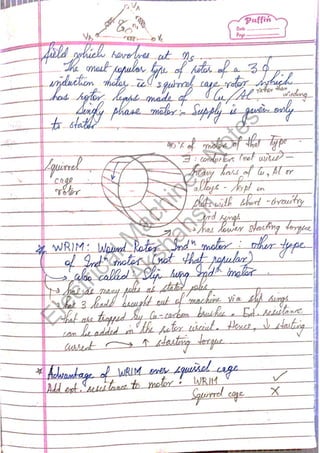 VA
VB
VC
Puffin
Date
Page
field which revolves at ns
The most popular type of rotor of a 3 Φ
induction motor is squirrel cage rotor which
has rotor bars made of Cu/Al rather than winding
Singly phase motor :- Supply is given only
to stator
90% of motors of that type
∃ conductors (not wires) -
Squirrel
cage
rotor
heavy bars of Cu, Al or
alloys - kept in
with short-circuiting
end rings
has lower starting torque
* WRIM: Wound Rotor Indⁿ motor : other type
of Indⁿ motor (not that popular)
→ also called Slip ring Indⁿ motor
→ has as many poles as stator poles
→ has 3 leads brought out of machine via slip rings
that are tapped by Cu-carbon brushes. Ext. resistance
can be added in the rotor circuit. Hence, ↓ starting
current → ↑ starting torque
* Advantage of WRIM over squirrel cage
Add ext. resistance to motor : WRIM ✓
Squirrel cage X
Electrical Machines Notes